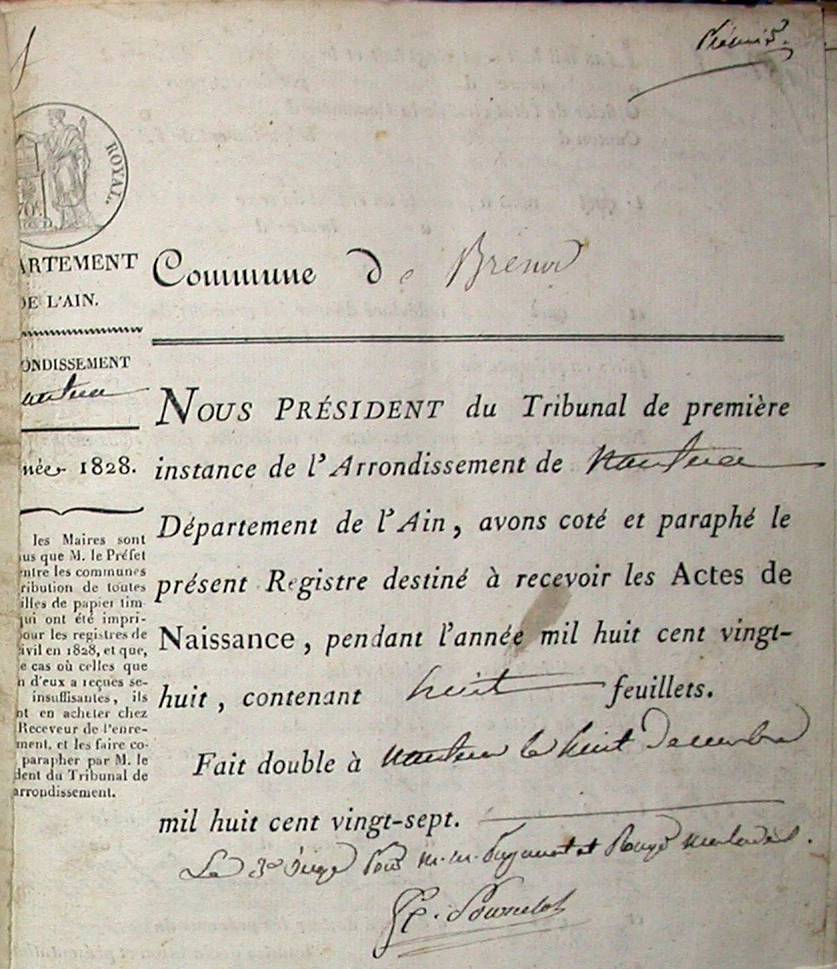 Premier
ROYAL.
ARTEMENT
DE L'AIN.
ONDISSEMENT
antua
née 1828.
les Maires sont
us que M. le Préfet
ntre les communes
ribution de toutes
illes de papier tim-
qui ont été impri-
our les registres de
ivil en 1828, et que,
e cas où celles que
n d'eux a reçues se-
insuffisantes, ils
nt en acheter chez
Receveur de l'enre-
ment, et les faire co-
parapher par M. le
dent du Tribunal de
arrondissement.
Commune de Brenod
NOUS PRÉSIDENT du Tribunal de première
instance de l'Arrondissement de Nantua
Département de l'Ain, avons coté et paraphé le
présent Registre destiné à recevoir les Actes de
Naissance, pendant l'année mil huit cent vingt-
huit, contenant huit feuillets.
Fait double à Nantua le huit Decembre
mil huit cent vingt-sept.
Le 3e Juge Pour M.M. et malades.